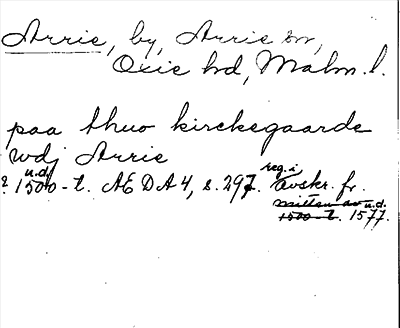 Arrie, by, Arrie sn,
Oxie hd, Malm. l.
paa thuo kirckegaarde
wdj Arrie
u.d. reg. i
? 1500-t. AEDA 4, s. 297. Avskr. fr.
mitten av u.d.
1500-t. 1577.